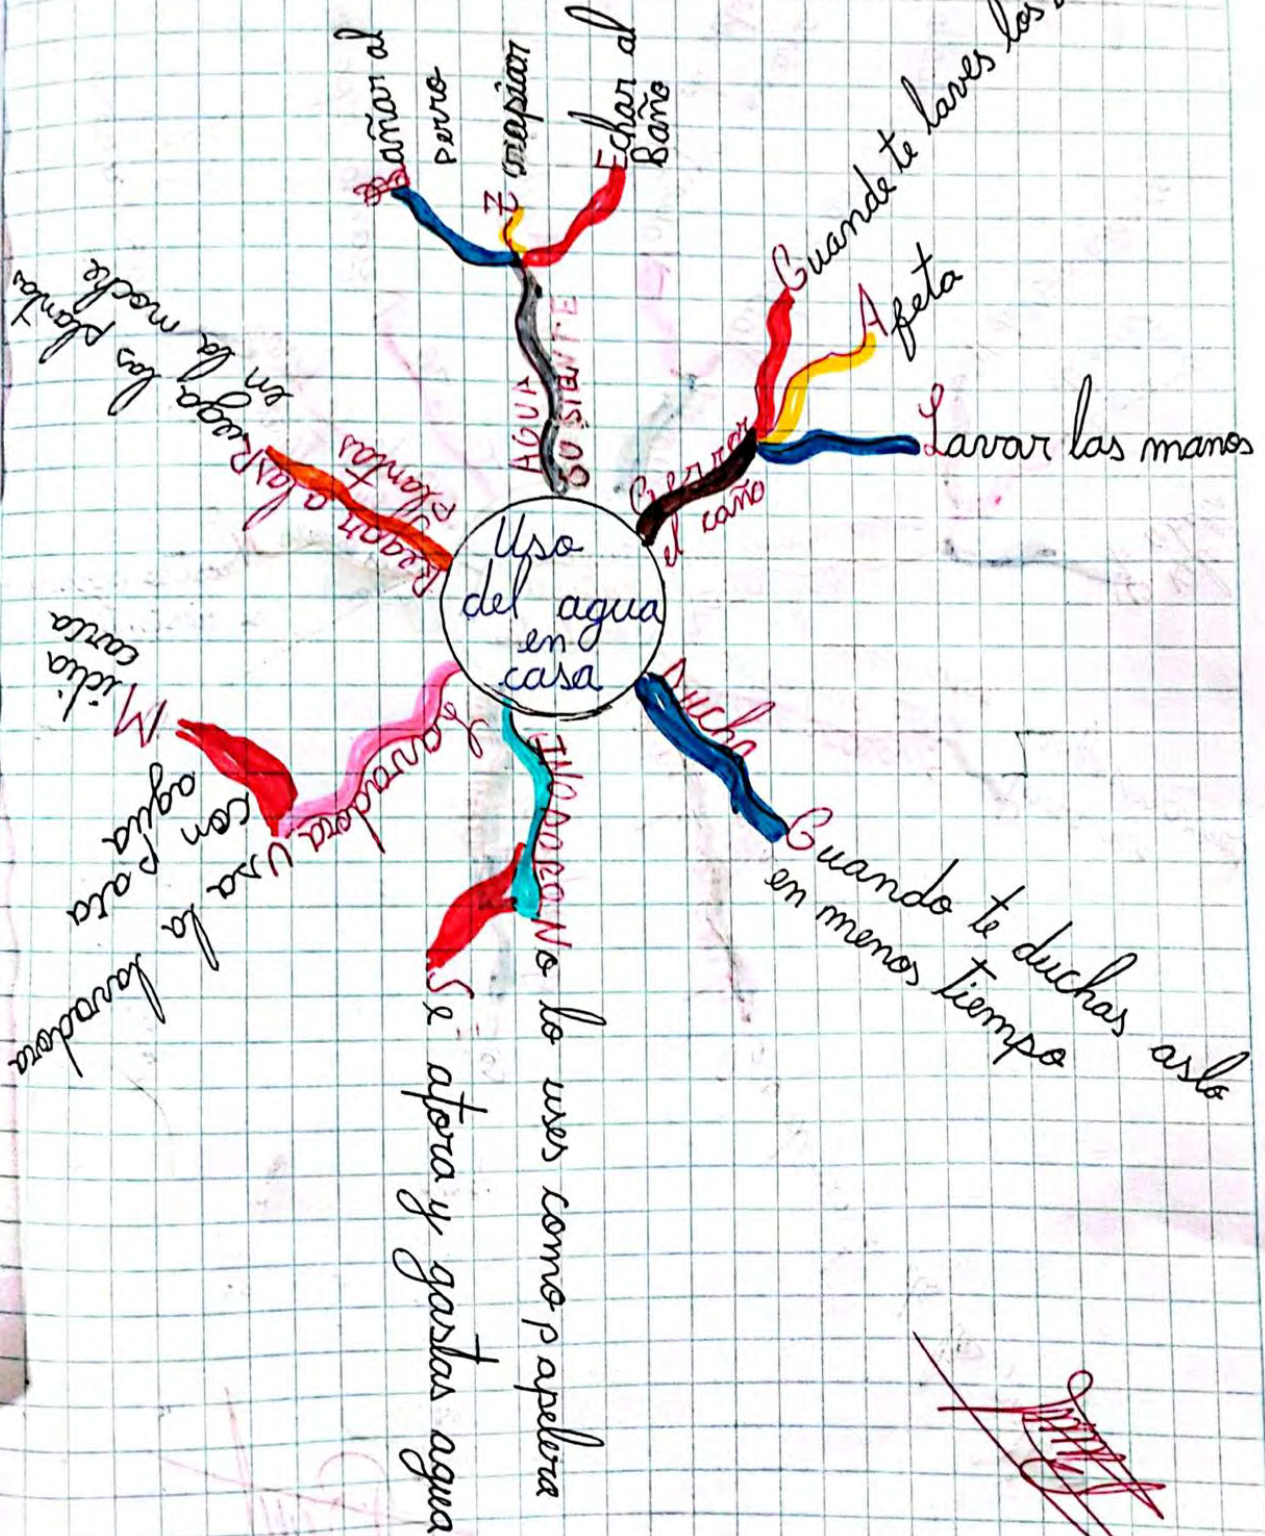 Uso
del agua
en
casa
AGUA
Bañar al
perro
Echar al
Baño
Cerrar
el caño
Cuande te laves los
Afeta
Lavar las manos
Ducha
Cuando te duchas aslo
en menos tiempo
INODORO
No lo uses como papelera
Se atora y gastas agua
Lavadora
Usa la lavadora
con Poca
agua
Midia
Regar a las
Plantas
Riega las plantas
en la noche